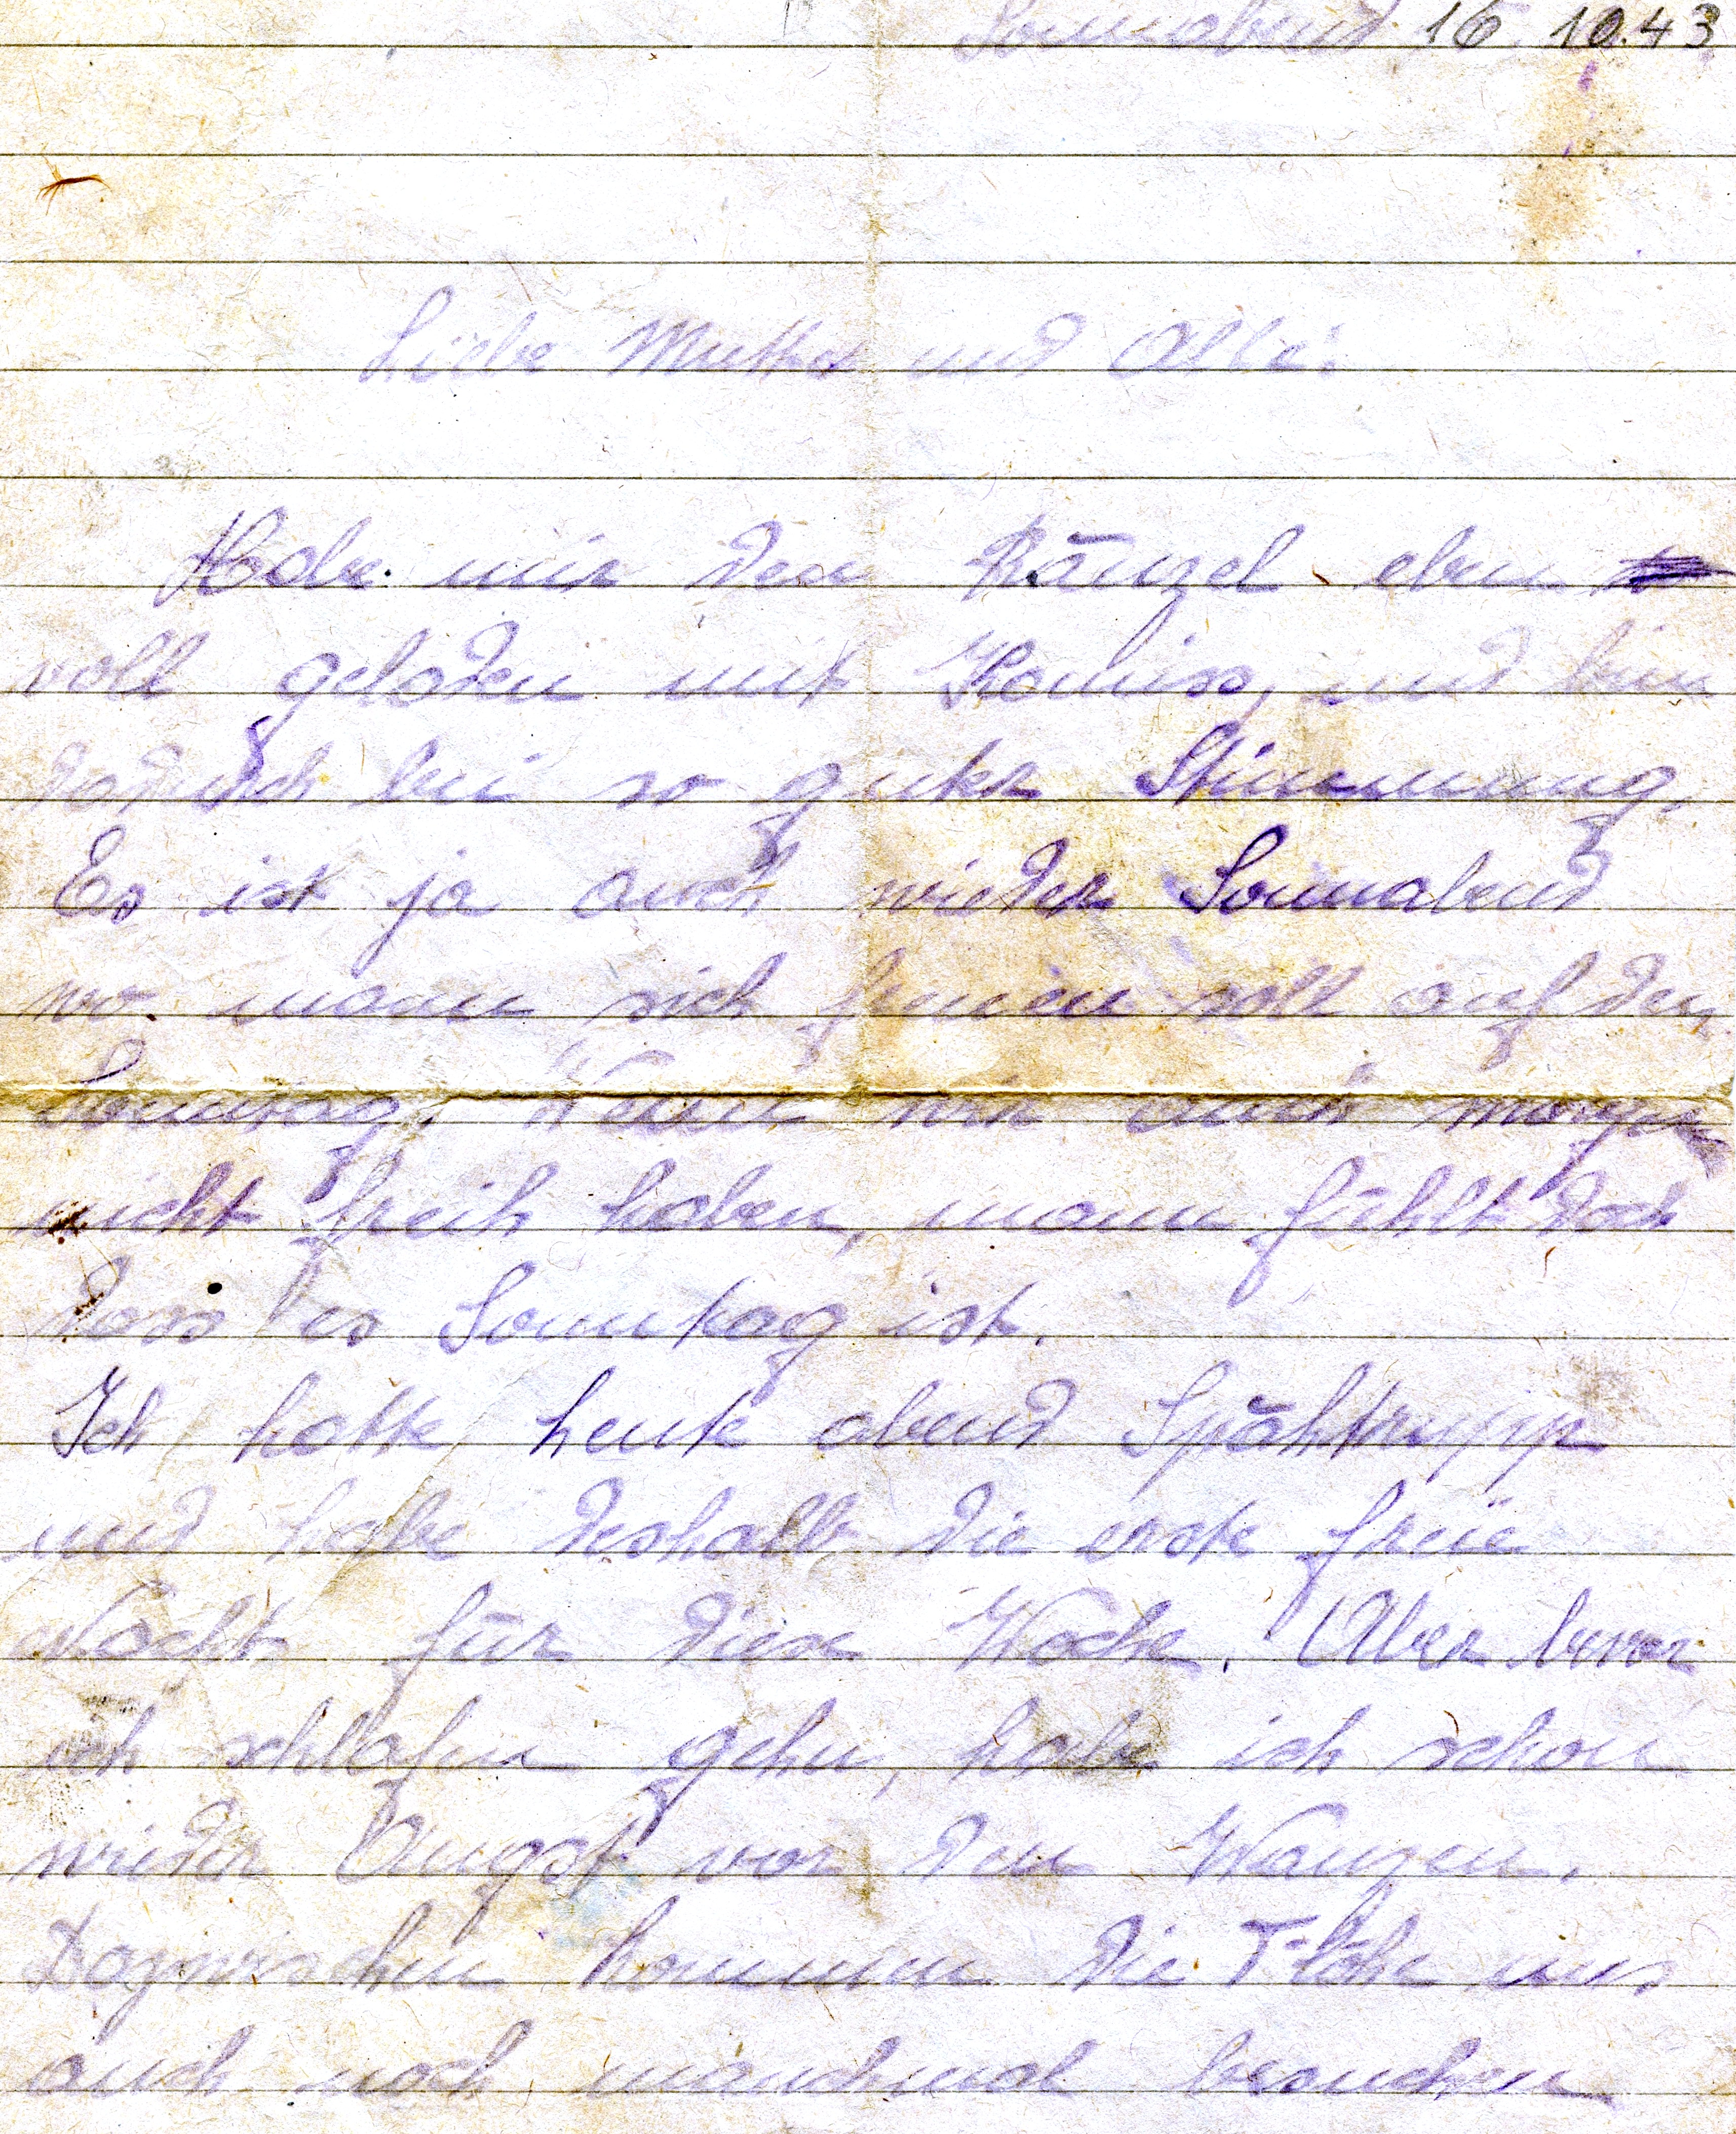 Sonnabend 16. 10.43
Liebe Mutter und Alle!
Habe mir den Ränzel eben
voll geladen mit Kommiss, und bin
dadurch bei so guter Stimmung.
Es ist ja auch wieder Sonnabend
wo mann sich freuen soll auf den
Sonntag. Wenn wir auch morgen
nicht freih haben, mann fühlt doch
dass es Sonntag ist.
Ich hatte heute abend Spähtrupp
und habe deshalb die erste freie
Nacht für diese Woche. Aber bevor
ich schlafen gehn, habe ich schon
wieder Angst vor den Wanzen.
Dazwischen kommen die Flöhe uns
auch noch manchmal besuchen